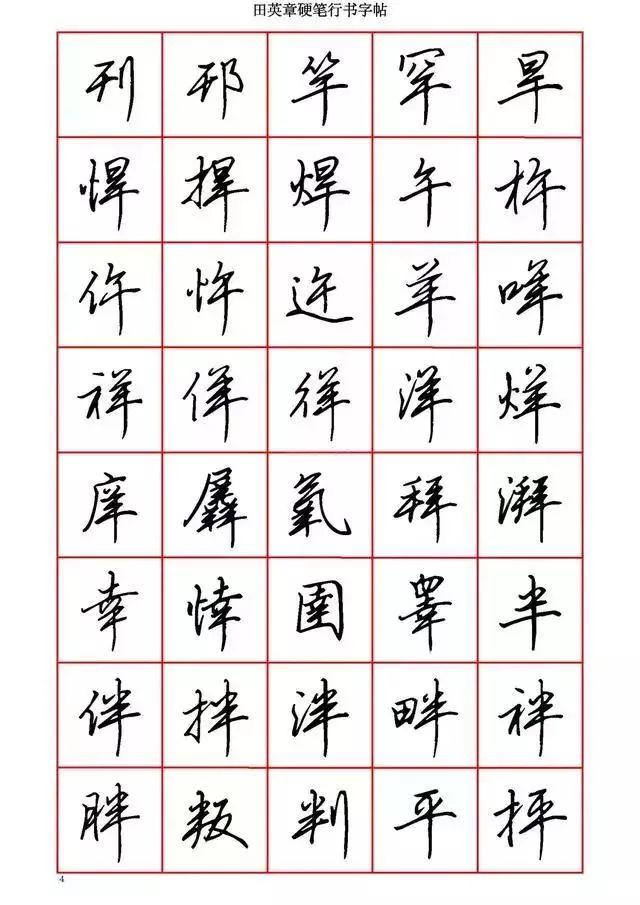 田英章硬笔行书字帖
刊 邗 竿 罕 旱
悍 捍 焊 午 杵
仵 忤 迕 羊 咩
祥 佯 徉 洋 烊
庠 羼 氧 拜 湃
幸 悻 圉 睾 半
伴 拌 泮 畔 袢
胖 叛 判 平 抨
4